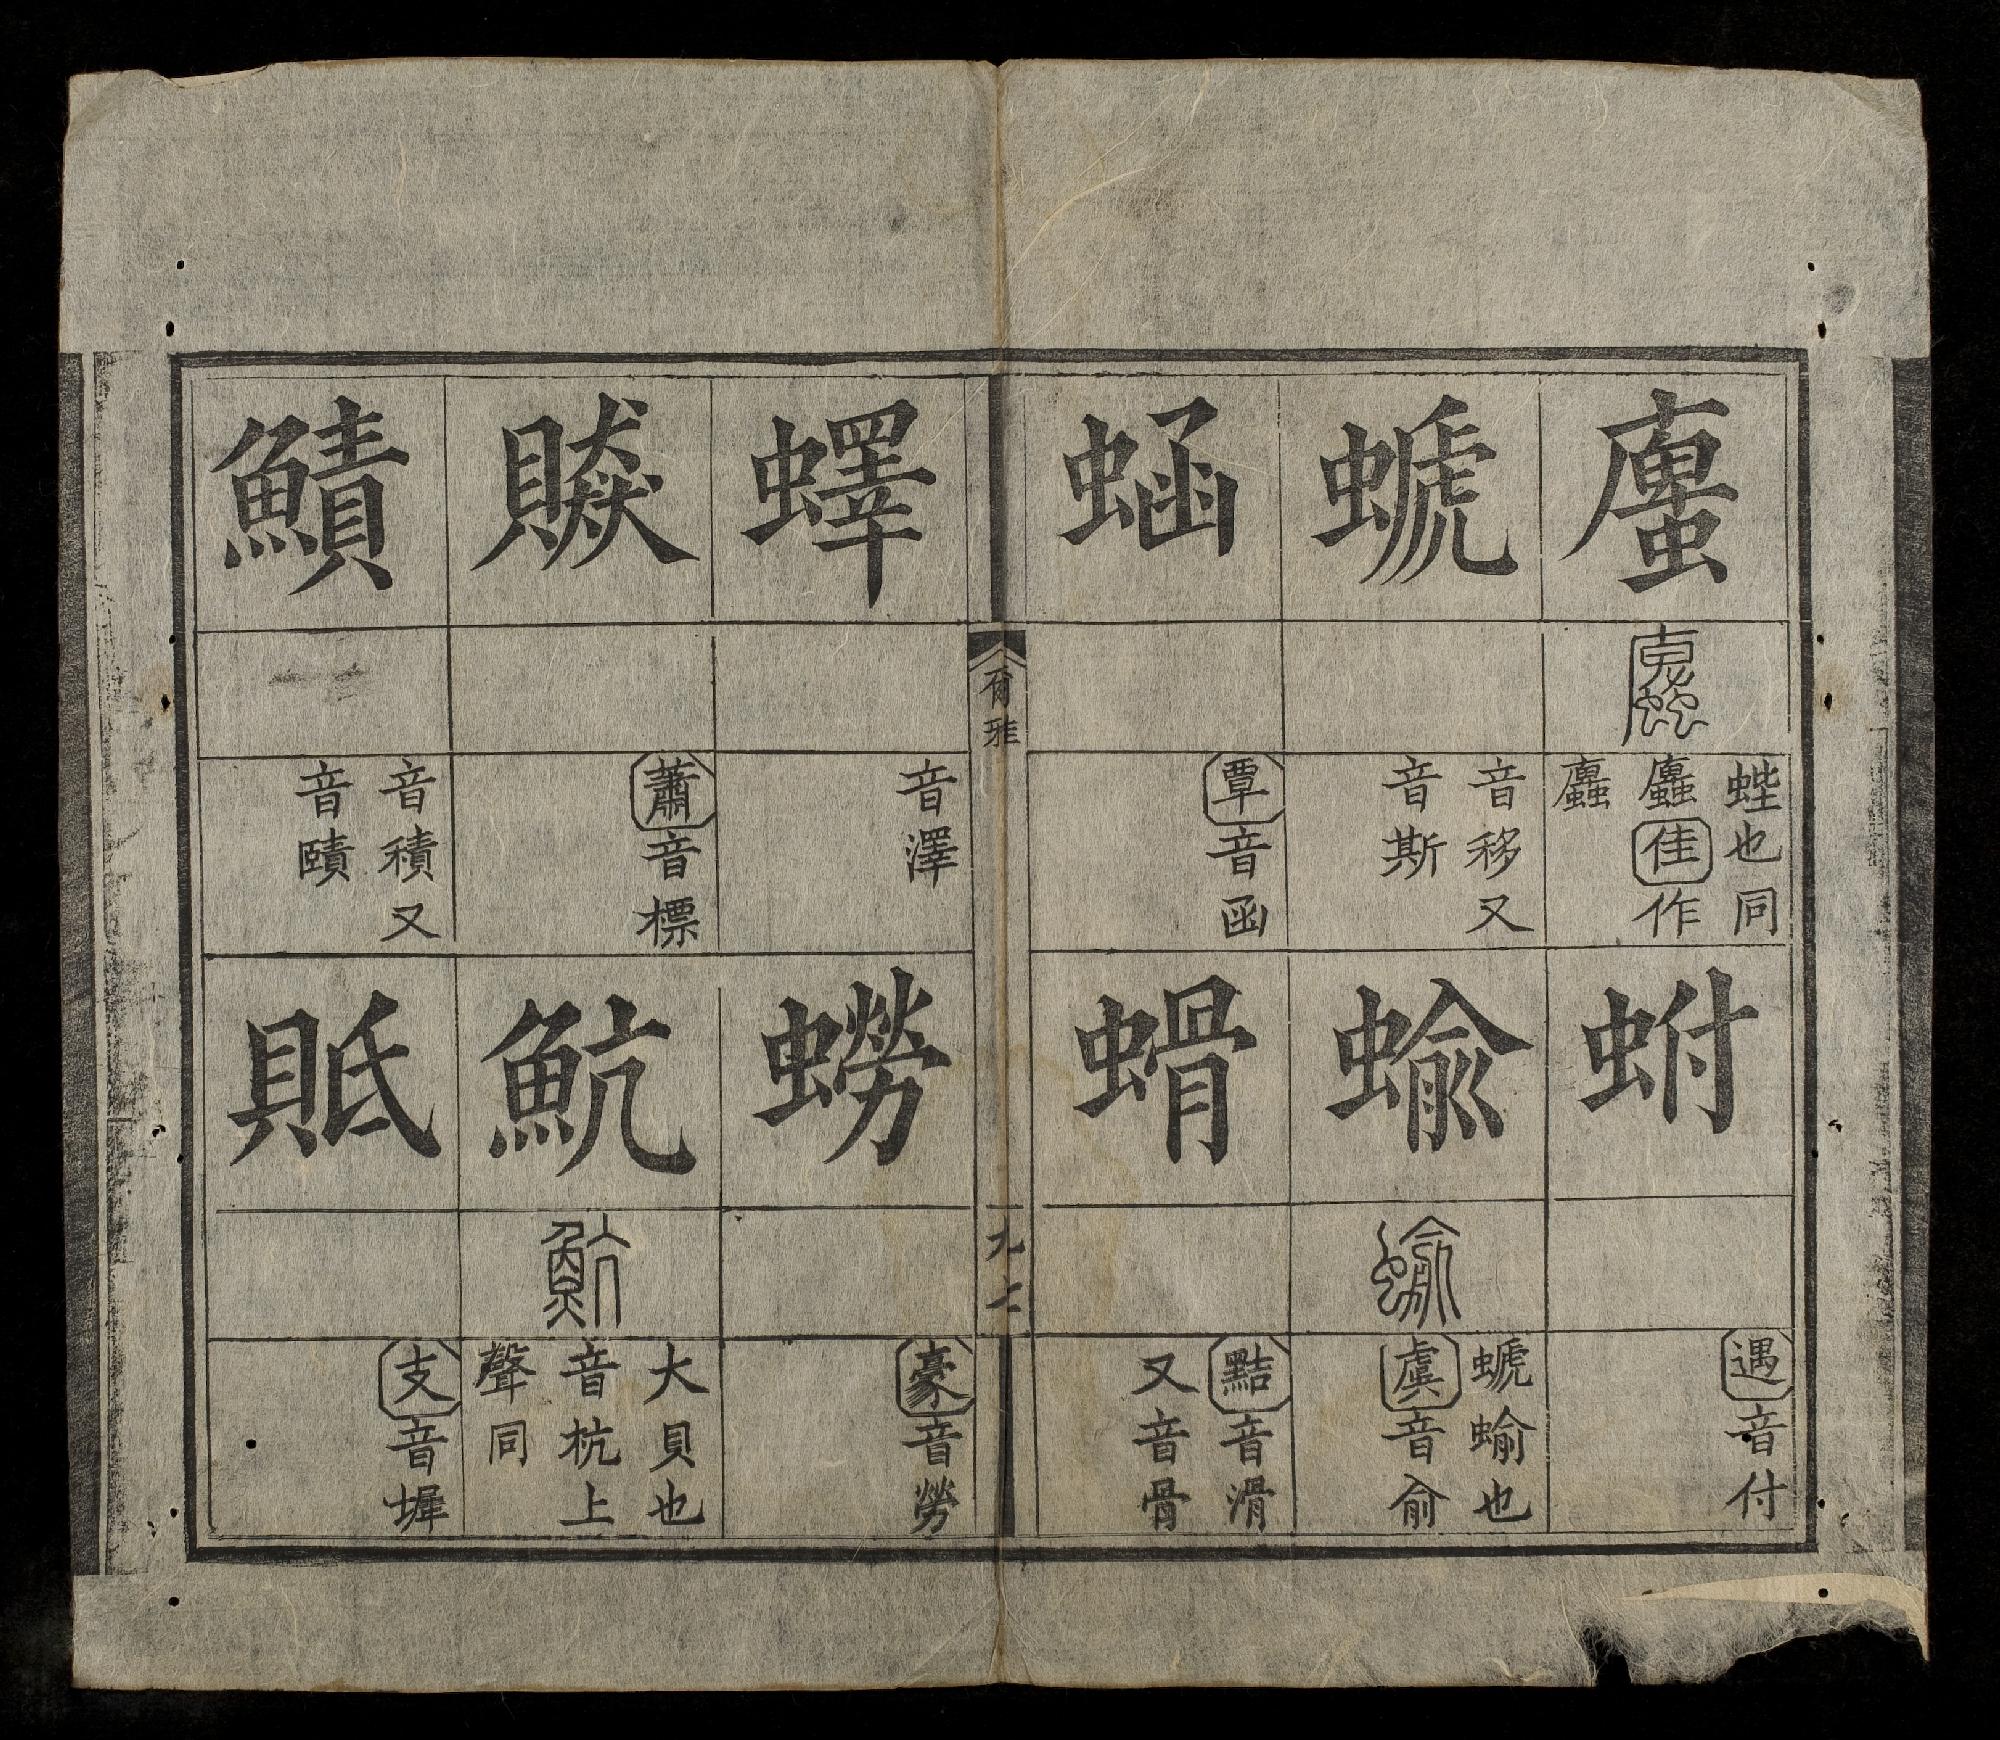 螷
蠯
蜌也同
蠯佳作
蠯
蚹
遇音付
螔
音移又
音斯
蝓
蝓
螔蝓也
虞音俞
蜬
覃音函
螖
黠音滑
又音骨
尔雅
九七
蠌
音澤
蟧
豪音勞
贆
蕭音標
魧
魧
大貝也
音杭上
聲同
鰿
音積又
音賾
貾
支音墀